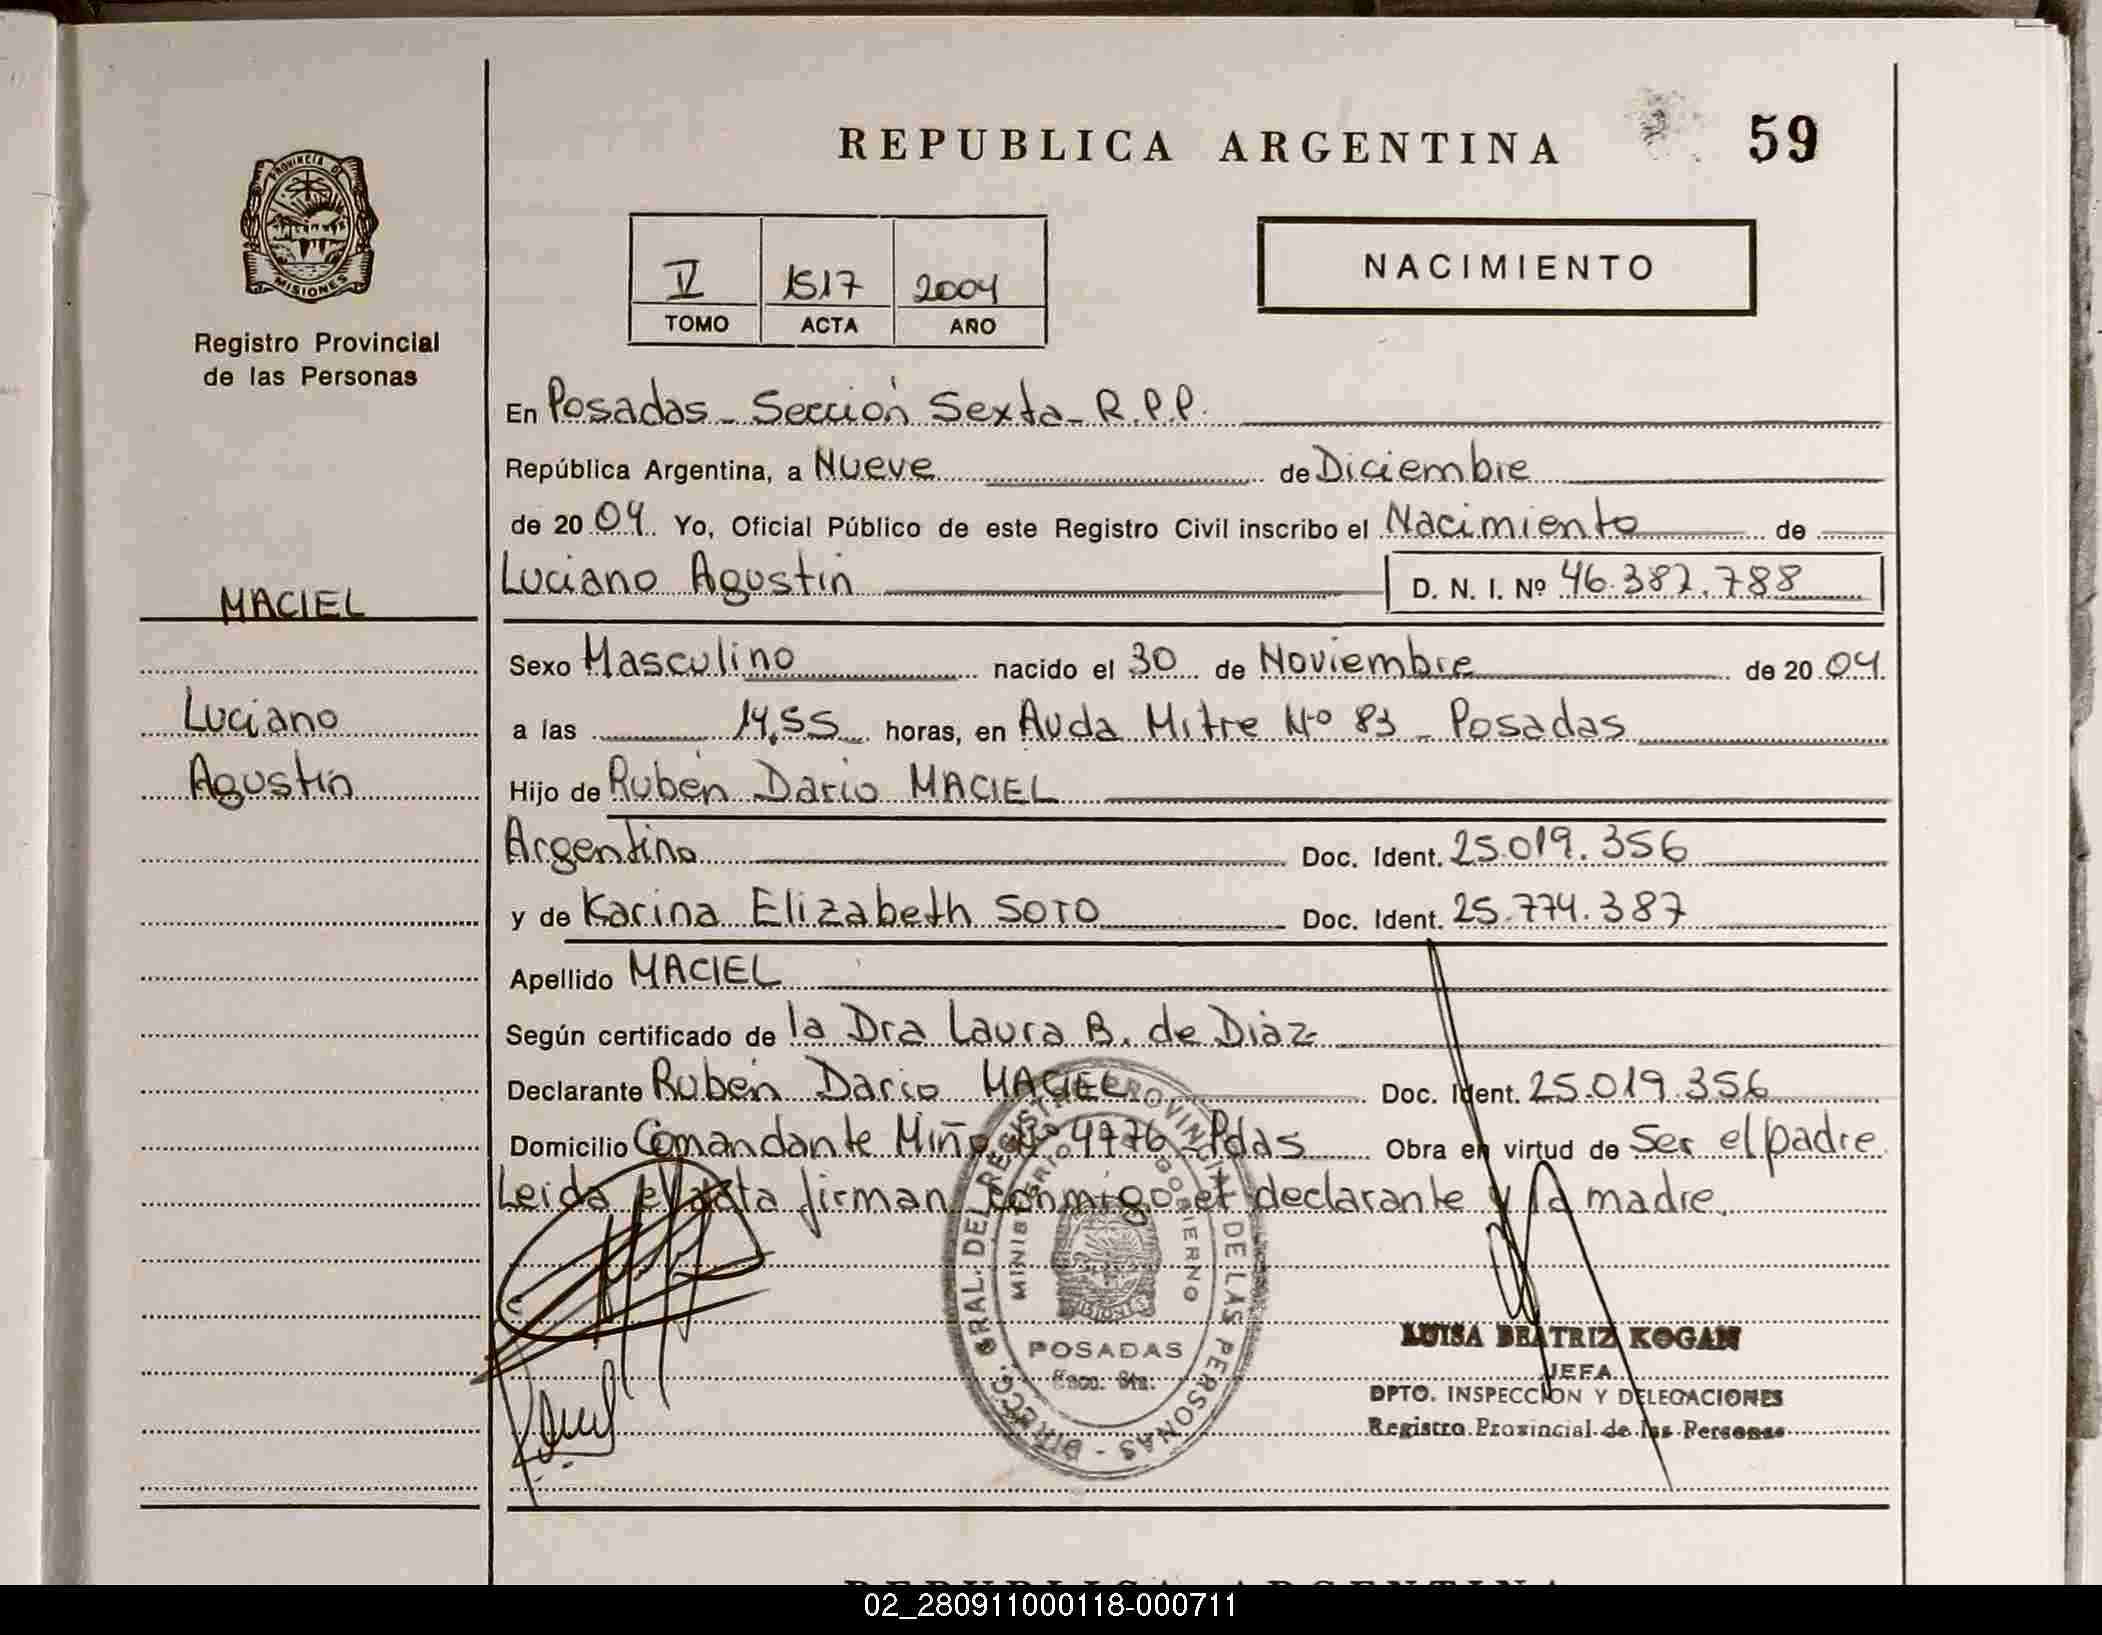 REPUBLICA ARGENTINA
59
PROVINCIA DE
MISIONES
Registro Provincial
de las Personas
V 1517 2004
TOMO ACTA AÑO
NACIMIENTO
En Posadas - Sección Sexta - R.P.P.
República Argentina, a Nueve de Diciembre
de 2004. Yo, Oficial Público de este Registro Civil inscribo el Nacimiento de
Luciano Agustín D. N. I. Nº 46.387.788
MACIEL
Luciano
Agustín
Sexo Masculino nacido el 30 de Noviembre de 2004.
a las 14,55 horas, en Avda Mitre Nº 83 - Posadas
Hijo de Rubén Dario MACIEL
Argentino Doc. Ident. 25.019.356
y de Karina Elizabeth SOTO Doc. Ident. 25.774.387
Apellido MACIEL
Según certificado de la Dra Laura B. de Diaz
Declarante Rubén Dario MACIEL Doc. Ident. 25.019.356
Domicilio Comandante Miño Nº 4776 - Pdas Obra en virtud de Ser el padre
Leida el acta firman conmigo el declarante y la madre.
DIRECC. GRAL. DEL REGISTRO PROVINCIAL DE LAS PERSONAS -
MINISTERIO GOBIERNO
MISIONES
POSADAS
Secc. 6ta.
LUISA BEATRIZ KOGAN
JEFA
DPTO. INSPECCION Y DELEGACIONES
Registro Provincial de las Personas
REPUBLICA ARGENTINA
02_280911000118-000711